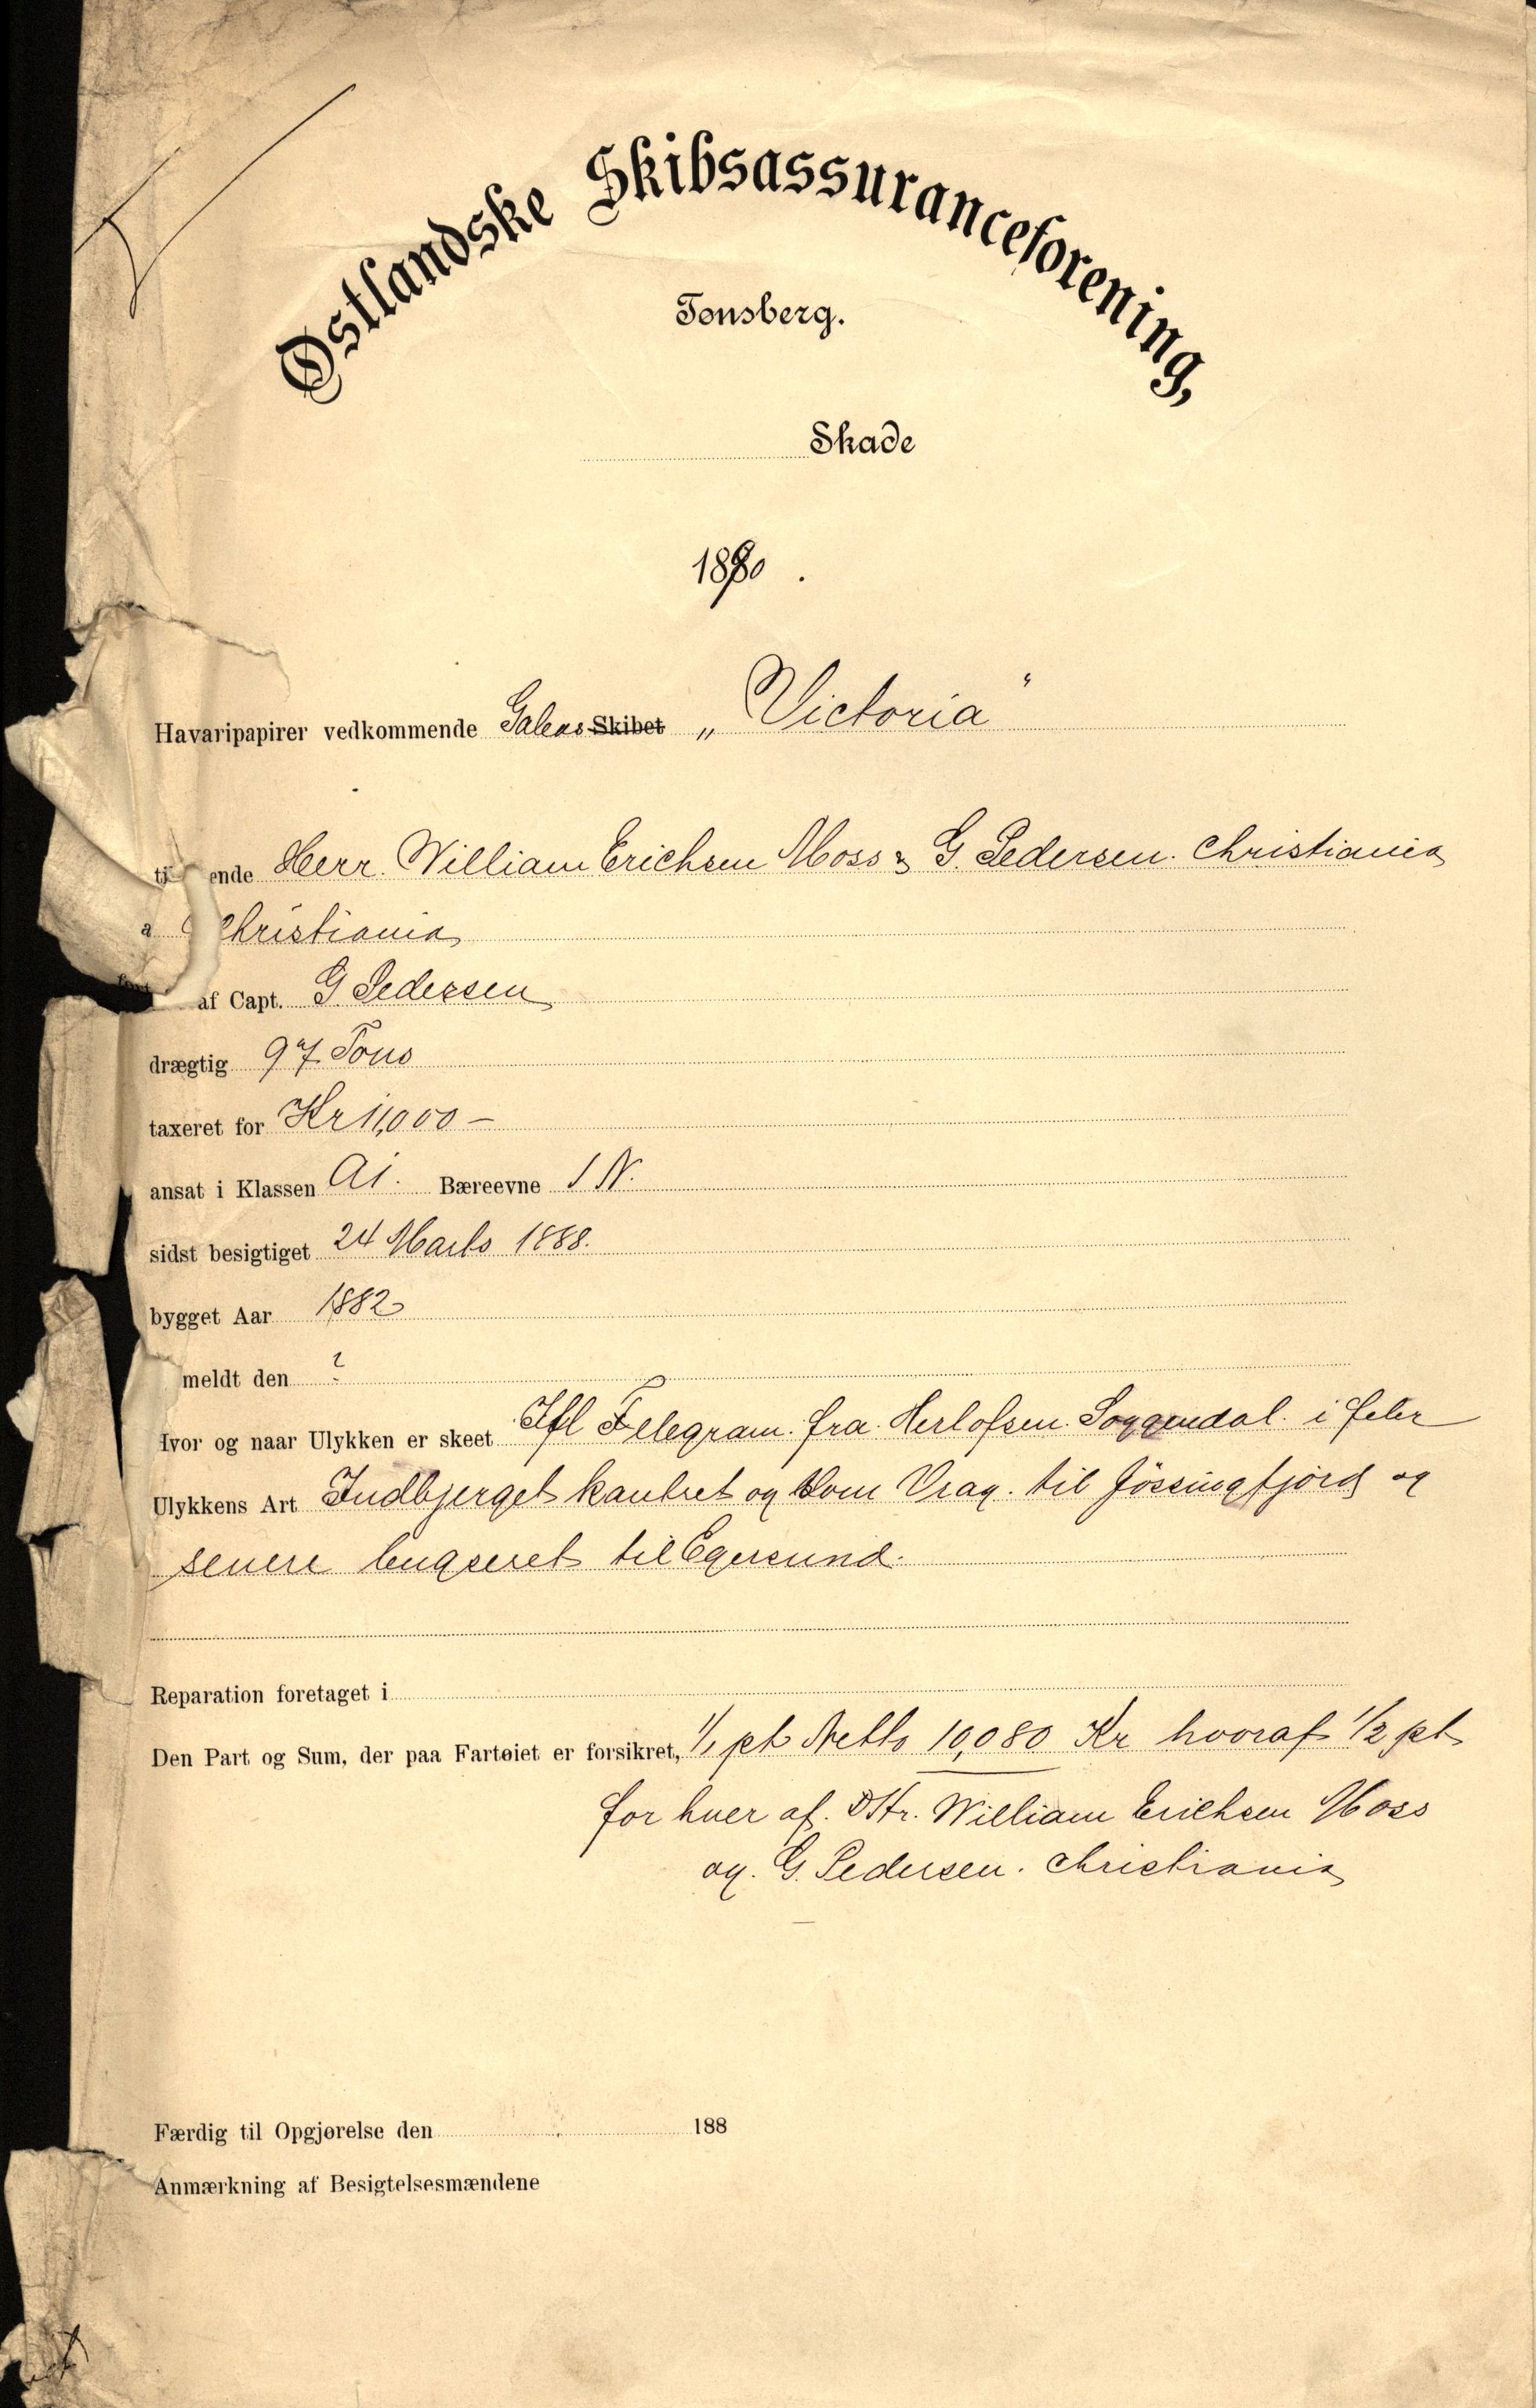 Østlandske Skibsassuranceforening,
Tønsberg.
Skade
1890.
Havaripapirer vedkommende Galeas Skibet „Victoria"
ti ende Herr. William Erichsen Moss & G. Pedersen. Christiania
a Christiania
af Capt. G Pedersen
drægtig 97 Tons
taxeret for Kr 11,000 –
ansat i Klassen A1. Bæreevne 1 N.
sidst besigtiget 24 Marts 1888.
bygget Aar 1882
meldt den ?
Hvor og naar Ulykken er skeet Ifl Telegram. fra Herlofsen. Soggendal. i
Ulykkens Art Indbjerget kantret og som Vrag. til Jössingfjord og
senere bugseret til Egersund.
Reparation foretaget i
Den Part og Sum, der paa Fartøiet er forsikret, 1/1 pt Netto 10,080 Kr hvoraf 1/2 pt
for hver af. DHr. William Erichsen Moss
og. G. Pedersen. Christiania
Færdig til Opgjørelse den 188
Anmærkning af Besigtelsesmændene